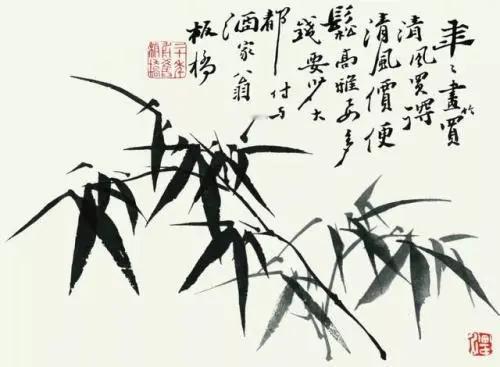 年〻畫竹買
清風買得
清風價便
鬆高雅要多
錢要少大
都付与
酒家翁
板橋